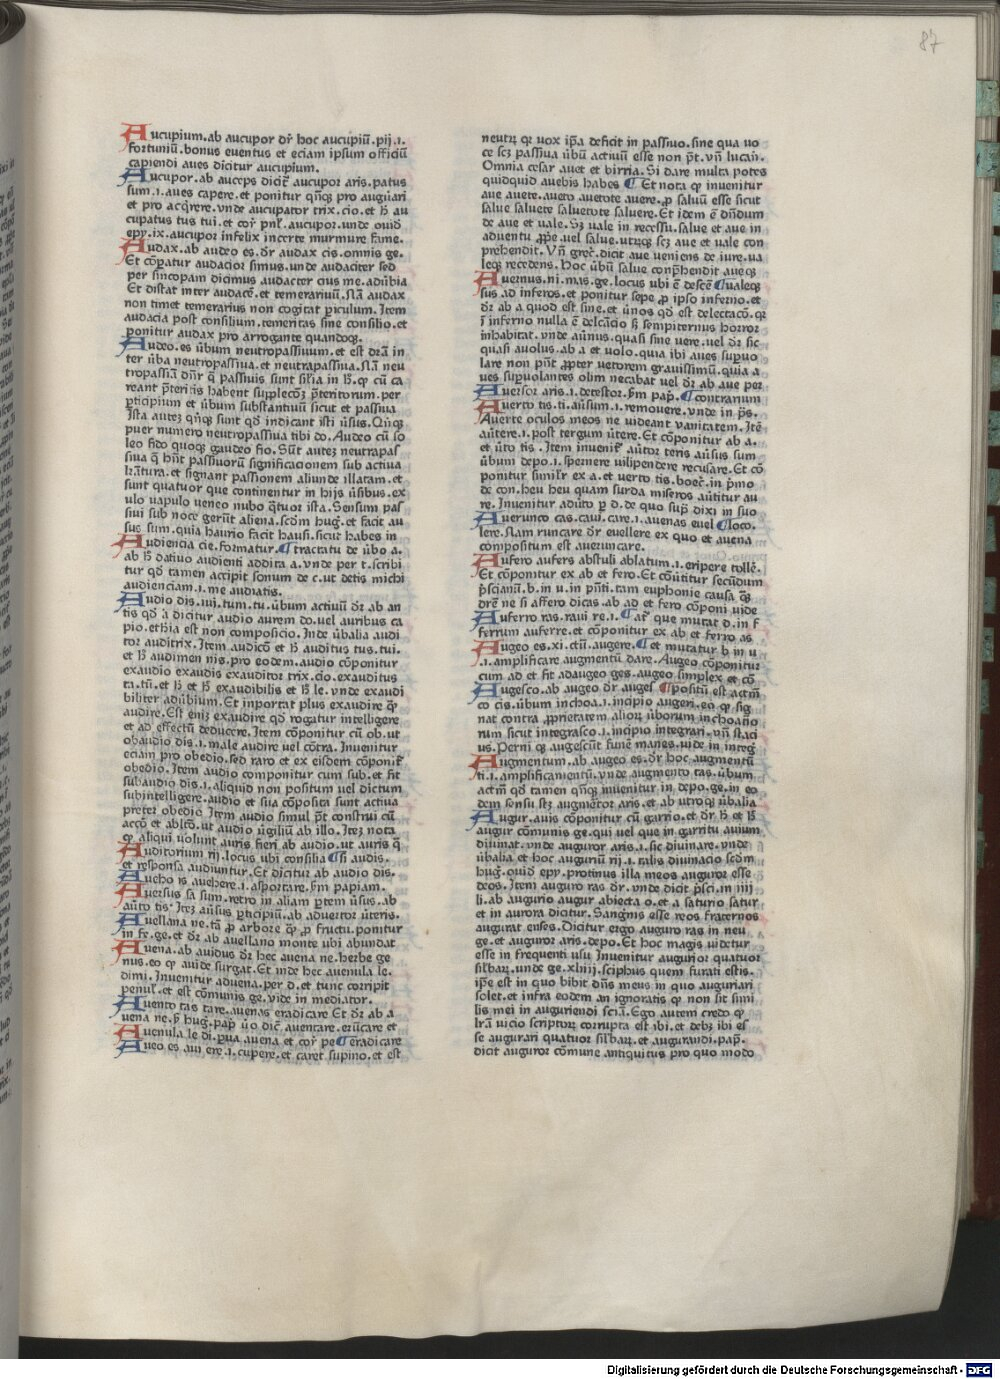 87
Aucupium.ab aucupor dr̄ hoc aucupiū.pij.i.
fortuniū.bonus euentus et eciam ipsum officiū
capiendi aues dicitur aucupium.
Aucupor.ab auceps dicit᷑ aucupor aris.patus
sum.i.aues capere.et ponitur qn̄qꝫ pro auguari
et pro acq̄rere.vnde aucupator trix.cio.et h̄ au
cupatus tus tui.et cor̄ pnl̄.aucupor.vnde ouid̄
epy.ix.aucupor infelix incerte murmure fame.
Audax.ab audeo es.dr̄ audax cis.omnis ge.
Et cōparatur audacior simus.vnde audaciter sed
per sincopam dicimus audacter cius me.adūbia
Et distat inter audacē.et temerariuū.Nā audax
non timet temerarius non cogitat p̄iculum.Item
audacia post consilium.temeritas sine consilio.et
ponitur audax pro arrogante quandoqꝫ.
Audeo.es ūbum neutropassiuum.et est dr̄a in
ter ūba neutropassiua.et neutrapassiua.Nā neu
tropassiā dn̄r q̄ passiuis sunt sil̄ia in h̄.qꝫ cū ca
reant p̄teritis habent supplecōꝫ p̄teritorum.per
p̄ticipium et ūbum substantiuū sicut et passiua
Ista autēꝫ qn̄qꝫ sunt qd̄ indicant isti ūsus.Qn̄qꝫ
puer numero neutropassiua tibi do.Audeo cū so
leo fido quoqꝫ gaudeo fio.Sūt autēꝫ neutrapas
siua q̄ hn̄t passiuorū significacionem sub actiua
lr̄atura.et signant passionem aliunde illatam.et
sunt quatuor que continentur in hijs ūsibus.ex
ulo vapulo veneo nubo q̄tuor ista.Sensum pas
siui sub noce gerūt aliena.scdm̄ huḡ.et facit au
sus sum.quia haurio facit hausi.sicut habes in
Audiencia cie.formatur. tractatu de ūbo a.
ab h̄ datiuo audienti addita a.vnde per t.scribi
tur qd̄ tamen accipit sonum de c.ut detis michi
audienciam.i.me audiatis.
Audio dis.iui.tum.tu.ūbum actiuū dr̄ ab an
tis qd̄ ā dicitur audio aurem do.vel auribus ca
pio.ethia est non composicio.Inde ūbalia audi
tor auditrix.Item audicō et h̄ auditus tus.tui.
et h̄ audimen nis.pro eodem.audio cōponitur
exaudio exaudis exauditor trix.cio.exauditus
ta.tū.et h̄ et h̄ exaudibilis et h̄ le.vnde exaudi
biliter adūbium.Et inportat plus exaudire qꝫ
audire.Est eniꝫ exaudire qd̄ rogatur intelligere
et ad effectū deducere.Item cōponitur cū ob.ut
obaudio dis.i.male audire vel cōtra.Inuenitur
eciam pro obedio.sed raro et ex eisdem cōponit᷑
obedio.Item audio componitur cum sub.et fit
subaudio dis.i.aliquid non positum vel dictum
subintelligere.audio et sūa cōposita sunt actiua
preter obedio Item audio simul p̄t construi cū
accō et ablcō.ut audio ūgiliū ab illo.Iteꝫ nota
qꝫ aliqui volunt auris fieri ab audio.ut auris q̄
Auditorium rij.locus ubi consilia si audis.
et responsa audiuntur.Et dicitur ab audio dis.
Aueho is auehere.i.asportare.s̄m papiam.
Auersus sa sum.retro in aliam p̄tem ūsus.ab
aūto tis.Iteꝫ aūsus p̄ticipiū.ab aduertor ūteris.
Auellana ne.tā p̄ arbore qꝫ p̄ fructu.ponitur
in fe.ge.et dr̄ ab auellano monte ubi abundat
Auena.ab auidus dr̄ hec auena ne.herbe ge
nus.eo qꝫ auide surgat.Et inde hec auenula le.
dimi.Inuenitur aduena.per d.et tunc corripit
penul̄.et est cōmunis ge.vide in mediator.
Auento tas tare.auenas eradicare Et dr̄ ab a
uena ne.s̄ huḡ.pap̄ ūo dic̄.auentare.erūcare et
Auenula le di.p̄ua auena et cor̄ pe eradicare
Aueo es aui ere.i.cupere.et caret supino.et est
neutꝝ qꝛ uox ip̄a deficit in passiuo.sine qua uo
ce scꝫ passiua ūbū actiuū esse non p̄t.vn̄ lucan̄.
Omnia cesar auet et birria.Si dare multa potes
quidquid auebis habes Et nota qꝫ inuenitur
aue auete.aueto auetote auere.p̄ saluū esse sicut
salue saluete saluetote saluere.Et idem ē dn̄dum
de aue et uale.Sꝫ uale in recessu.salue et aue in
aduentu p̄pe.uel salue.utrūqꝫ scꝫ aue et uale con
prehendit.Vn̄ grec̄.dicit aue veniens de iure.ua
leqꝫ recedens.Hoc ūbū salue conp̄hendit aueqꝫ
Auernus.ni.mas.ge.locus ubi ē descē ualeqꝫ
sus ad inferos.et ponitur sepe p̄ ipso inferno.et
dr̄ ab a quod est sine.et ūnos qd̄ est delectacō.qꝛ
ī inferno nulla ē delcāio sꝫ sempiternus horror
inhabitat.vnde aūnus.quasi sine uere.uel dr̄ sic
quasi auolus.ab a et uolo.quia ibi aues sup̄uo
lare non pn̄t p̄pter vetorem grauissimū.quia a
ues sup̄uolantes olim necabat uel dr̄ ab aue per
Auersor aris.i.detestor.s̄m pap̄. contrarium
Auerto tis.ti.aūsum.i.remouere.vnde in p̄s.
Auerte oculos meos ne uideant vanitatem.Itē
aūtere.i.post tergum ūtere.Et cōponitur ab a.
et ūto tis.Item inuenit᷑ aūtor teris aūsus sum
ūbum depo.i.spernere uilipendere recusare.Et cō
ponitur simil̄r ex a.et verto tis.boec̄.in p̄mo
de con.heu heu quam surda miseros aūtitur au
re.Inuenitur aduto p̄ d.de quo sup̄ dixi in suo
Auerunco cas.caui.care.i.auenas euel loco.
lere.Nam runcare dr̄ euellere ex quo et auena
compositum est aueruncare.
Aufero aufers abstuli ablatum.i.eripere tollē.
Et cōponitur ex ab et fero.Et cōūtitur secūdum
p̄scianū.b.in u.in pn̄ti.tam euphonie causa q̄ꝫ
drē ne si affero dicas ab ad et fero cōponi uide
Auferro ras.raui re.i. at᷑ que mutat d.in f
ferrum auferre.et cōponitur ex ab et ferro as
Augeo es.xi.ctū.augere. et mutatur b in u
.i.amplificare augmentū dare.Augeo cōponitur
cum ad et fit adaugeo ges.augeo simplex et cō
Augesco.ab augeo dr̄ augel positū est actm̄
co cis.ūbum inchoa.i.incipio augeri.eo qꝫ sig
nat contra p̄prietatem alioꝝ ūborum inchoatio
rum sicut integrasco.i.incipio integrari.vn̄ staci
us.Perni qꝫ augescūt funē manes.uide in inteḡ
Augmentum.ab augeo es.dr̄ hoc augmentū
ti.i.amplificamentū.vnde augmento tas.ūbum
actm̄ qd̄ tamen qn̄qꝫ inuenitur in depo.ge.in eo
dem sensu scꝫ augmētor aris.et ab utroqꝫ ūbalia
Augur.auis cōponitur cū garrio.et dr̄ h̄ et h̄
augur cōmunis ge.qui uel que in garritu auium
diuinat.vnde auguror aris.i.sic diuinare.vnde
ūbalia et hoc auguriū rij.i.talis diuinacio scdm̄
huḡ.ouid̄ epy.protinus illa meos auguror esse
deos.Item auguro ras dr̄.vnde dicit p̄sci.in iiij
li.ab augurio augur abiecta o.et a saturio satur
et in aurora dicitur.Sangīnis esse reos fraternos
augurat enses.Dicitur ergo auguro ras in neu
ge.et auguror aris.depo.Et hoc magis uidetur
esse in frequenti usu Inuenitur augurior quatuor
sil̄baꝝ.unde ge.xliiij.sciphus quem furati estis.
ip̄e est in quo bibit dn̄s meus in quo auguriari
solet.et infra eodem an ignoratis qꝫ non sit simi
lis mei in auguriendi sciā.Ego autem credo qꝫ
lr̄a vicio scriptoꝝ corrupta est ibi.et debꝫ ibi es
se augurari quatuor sil̄baꝝ.et augurandi.pap̄.
dicit auguror cōmune antiquitus pro quo modo
Digitalisierung gefördert durch die Deutsche Forschungsgemeinschaft - DFG